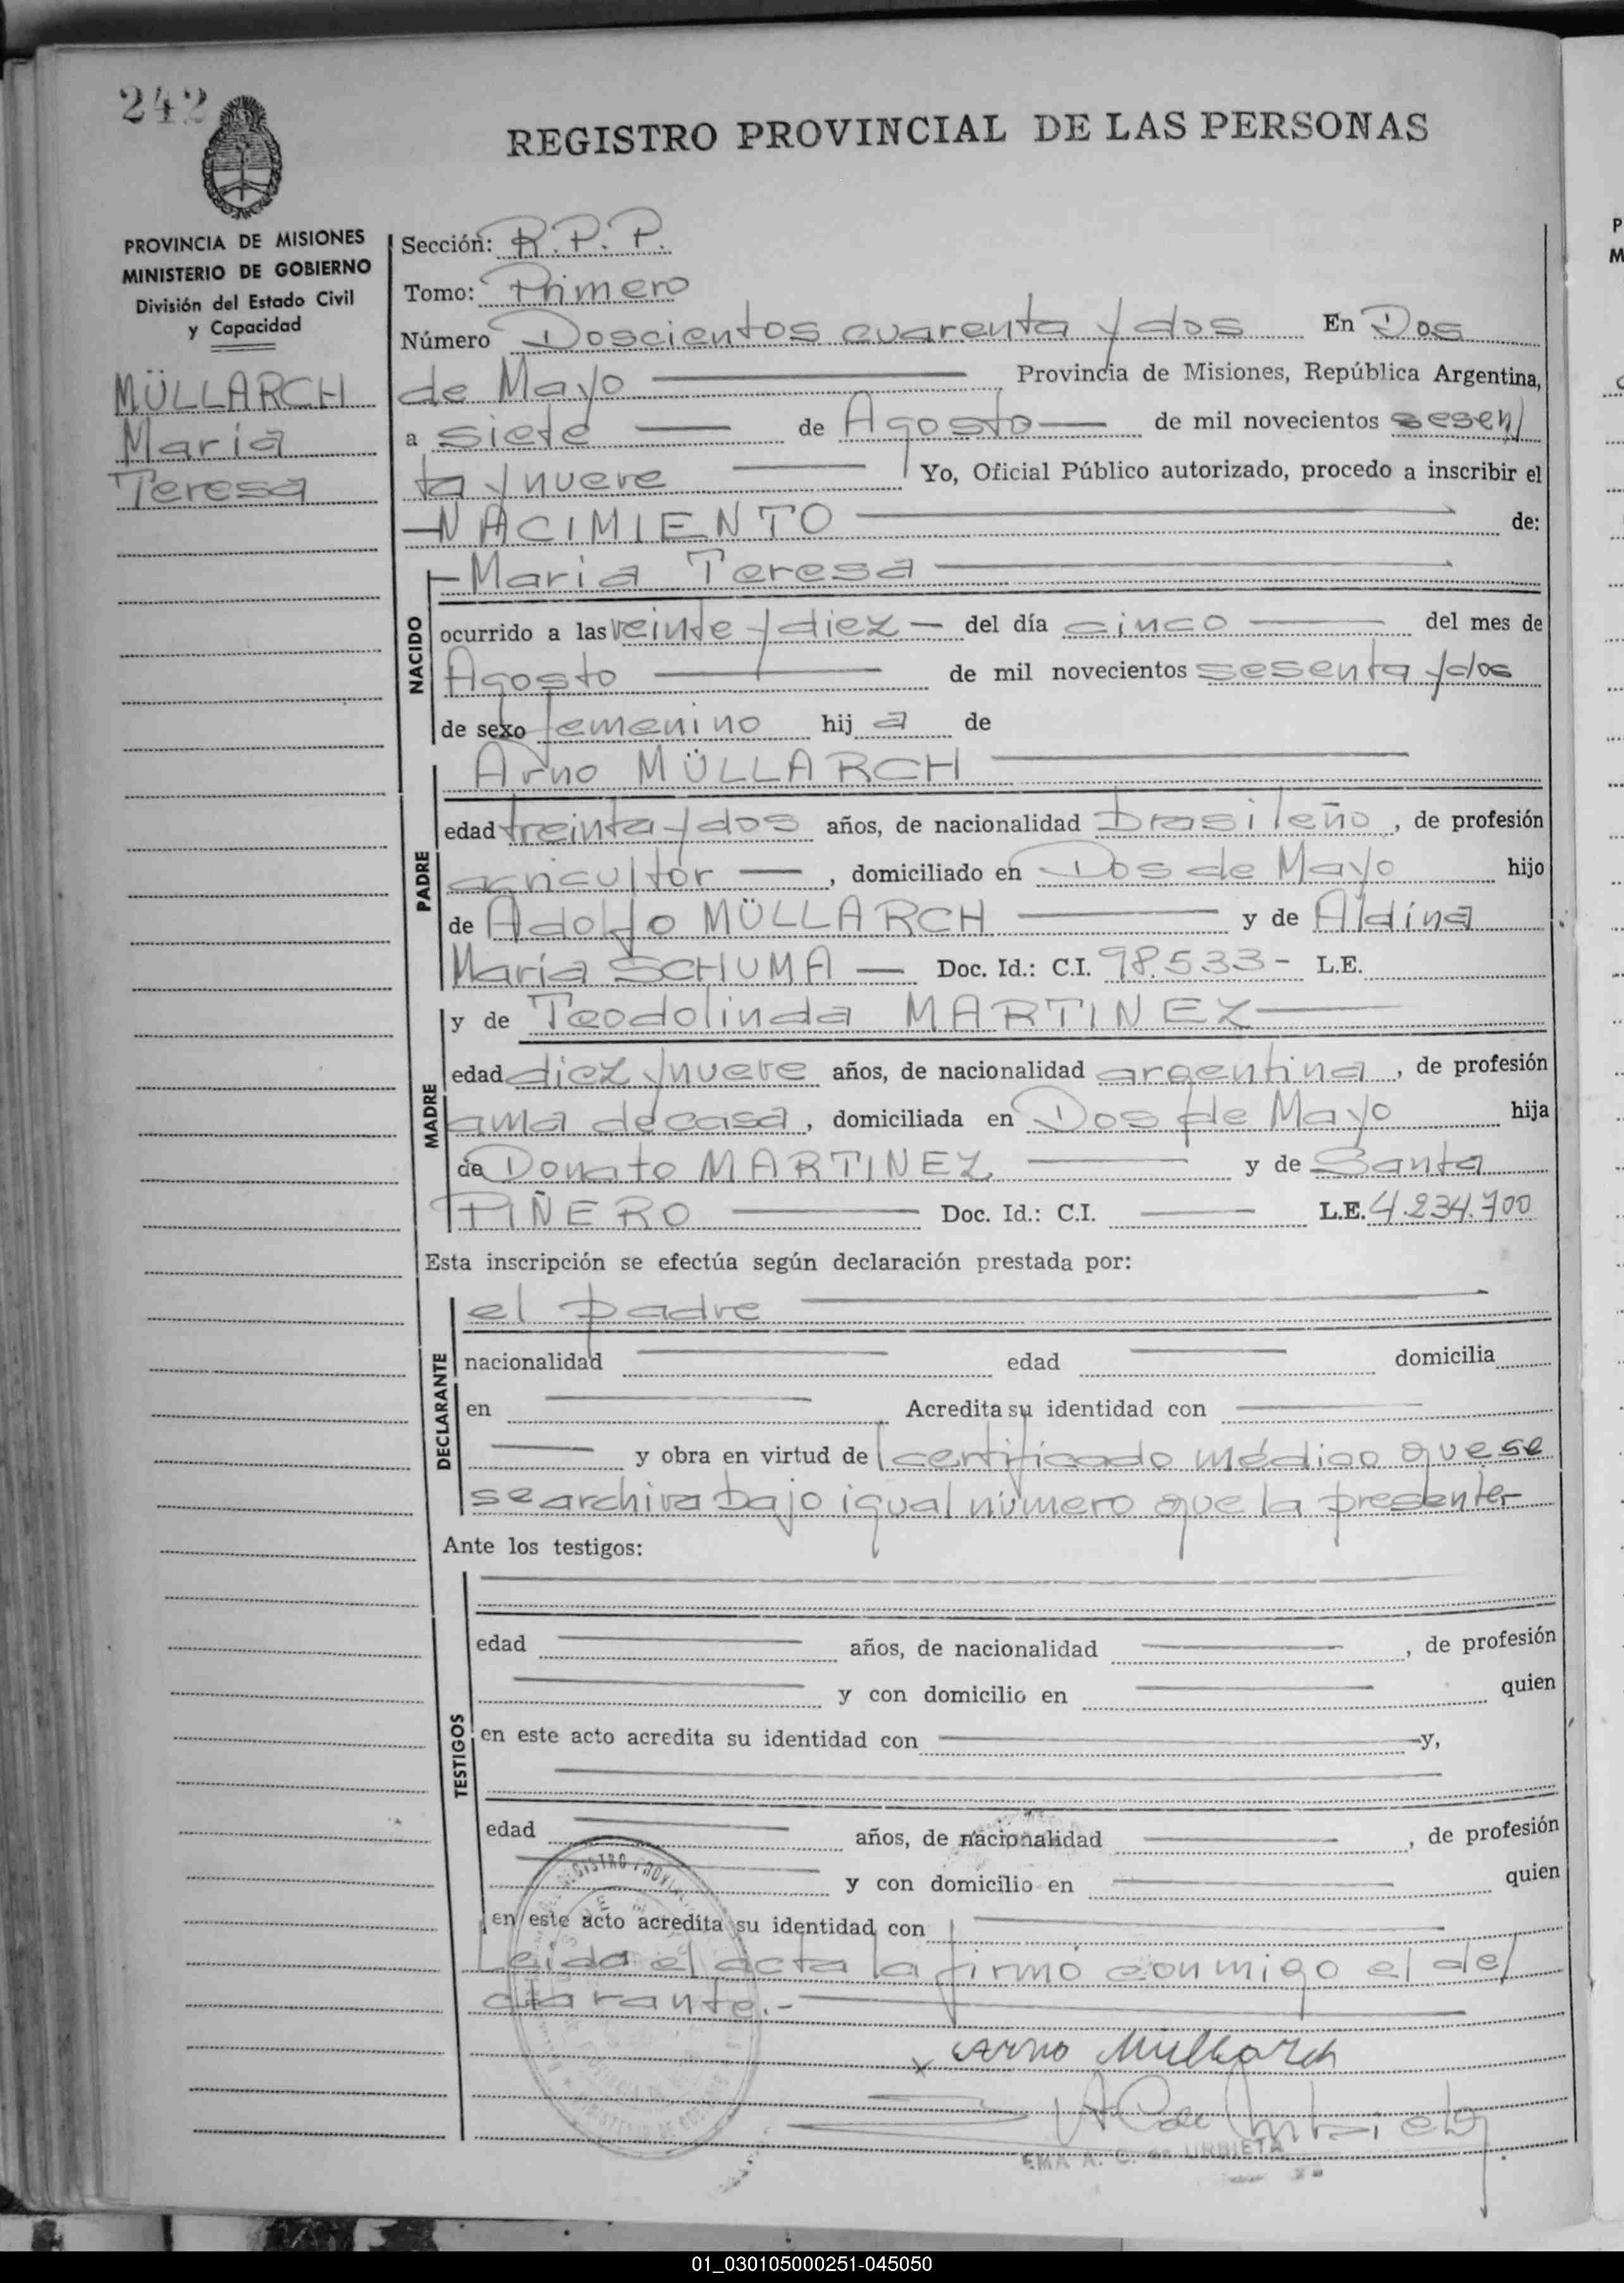 242
REGISTRO PROVINCIAL DE LAS PERSONAS
PROVINCIA DE MISIONES
MINISTERIO DE GOBIERNO
División del Estado Civil
y Capacidad
MÜLLARCH
María
Teresa
Sección: R.P.P.
Tomo: Primero
Número Doscientos cuarenta y dos En Dos
de Mayo Provincia de Misiones, República Argentina,
a siete de Agosto de mil novecientos sesen
ta y nueve Yo, Oficial Público autorizado, procedo a inscribir el
NACIMIENTO de:
NACIDO
María Teresa
ocurrido a las veinte y diez del día cinco del mes de
Agosto de mil novecientos sesenta y dos
de sexo femenino hij a de
PADRE
Arno MÜLLARCH
edad treinta y dos años, de nacionalidad brasileño, de profesión
agricultor, domiciliado en Dos de Mayo hijo
de Adolfo MÜLLARCH y de Aldina
María SCHUMA Doc. Id.: C.I. 98.533- L.E.
MADRE
y de Teodolinda MARTINEZ
edad diez y nueve años, de nacionalidad argentina, de profesión
ama de casa, domiciliada en Dos de Mayo hija
de Donato MARTINEZ y de Santa
PIÑERO Doc. Id.: C.I. L.E. 4.234.700
Esta inscripción se efectúa según declaración prestada por:
DECLARANTE
el padre
nacionalidad edad domicilia
en Acredita su identidad con
y obra en virtud de certificado médico que se
se archiva bajo igual número que la presente.-
Ante los testigos:
TESTIGOS
edad años, de nacionalidad , de profesión
y con domicilio en quien
en este acto acredita su identidad con y,
edad años, de nacionalidad , de profesión
y con domicilio en quien
en este acto acredita su identidad con
Leida el acta la firmó conmigo el del
clarante.-
x Arno Mullarch
EMA A. C. de URBIETA
01_030105000251-045050